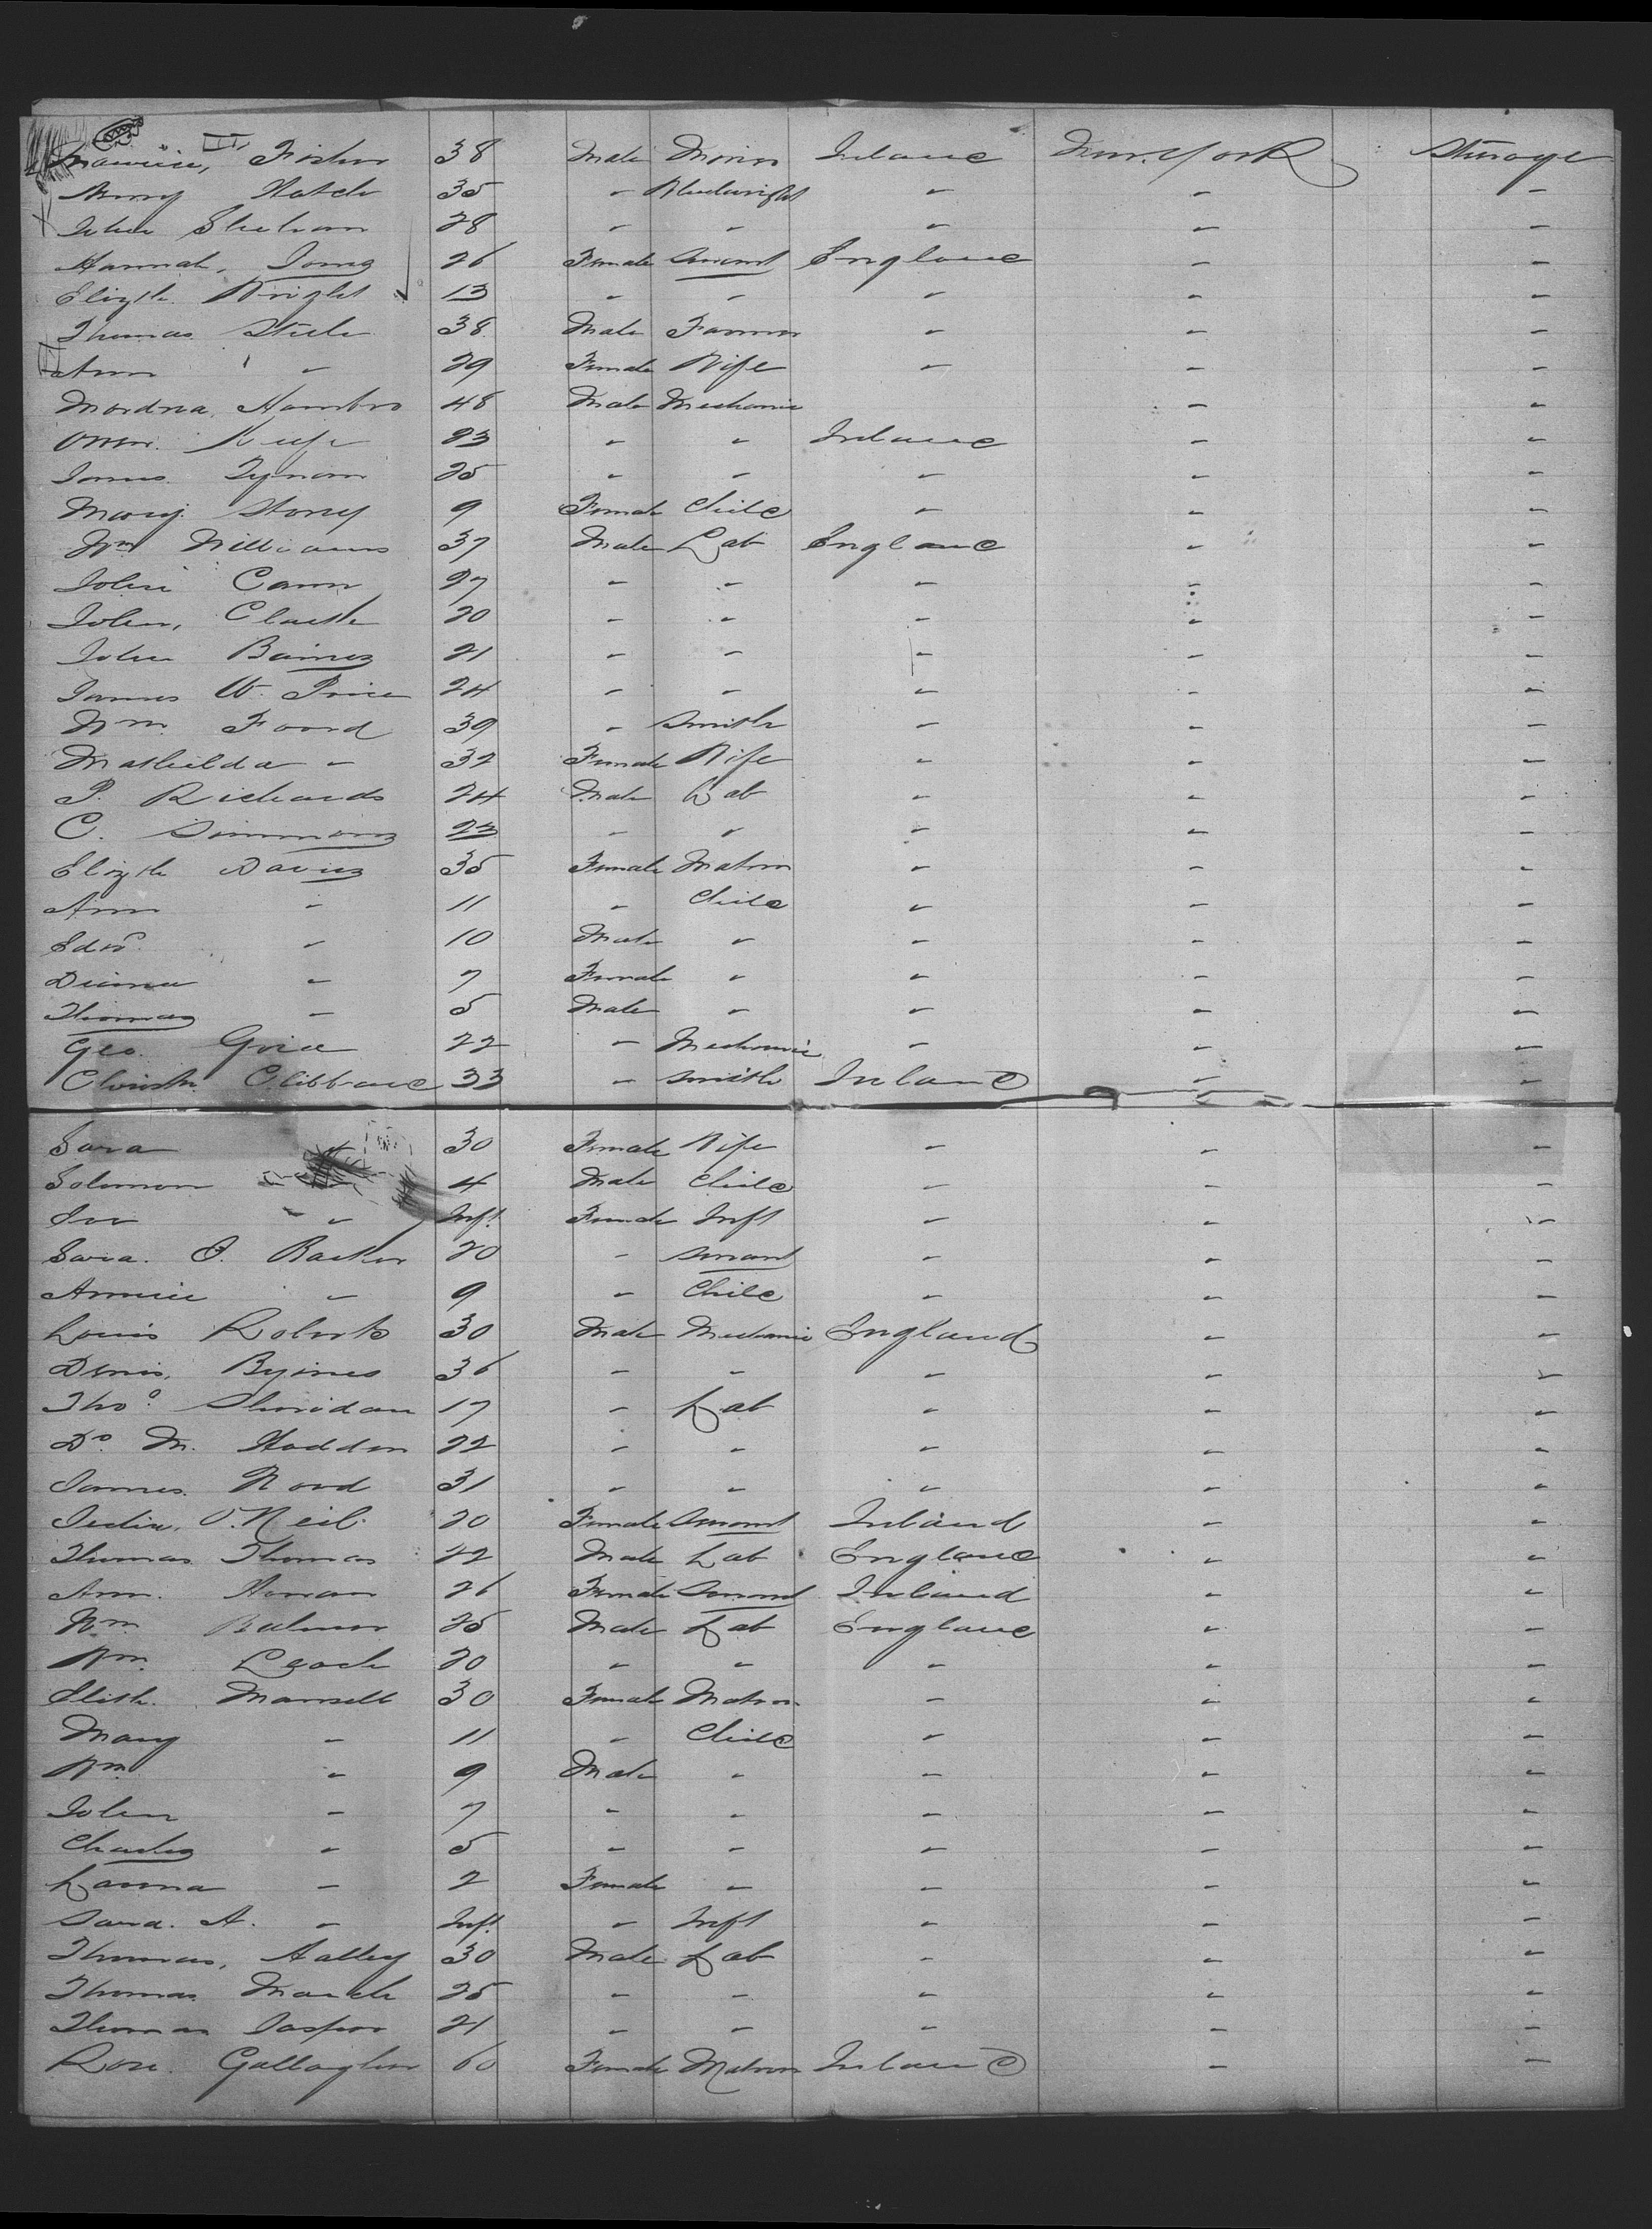 Maurice, Fisher 38 Male Miner Ireland New York Steerage
Henry Hatch 35 " Wheelwright " " "
John Sheehan 28 " " " " "
Hannah, Jones 26 Female Servant England " "
Elizth. Wright 13 " " " " "
Thomas Steele 38 Male Farmer " " "
Ann " 29 Female Wife " " "
Hambro 48 Male Mechanic " "
Keefe 23 " " Ireland " "
James Tynan 25 " " " " "
Mary Storey 9 Female Child " " "
Wm Williams 37 Male Lab England " "
John Cann 27 " " " " "
John, Clarke 20 " " " " "
John Baines 21 " " " " "
James W. Price 24 " " " " "
Wm. Foord 39 " Smith " " "
Mathilda " 32 Female Wife " " "
P. Richards 24 Male Lab " " "
C. Simmons 23 " " " " "
Elizth Davies 35 Female Matron " " "
Ann " 11 " Child " " "
Edwd " 10 Male " " " "
Diana " 7 Female " " " "
Thomas " 5 Male " " " "
Geo. Grice 22 " Mechanic " " "
Christr. Clibbane 33 " Smith Ireland " "
Sara 30 Female Wife " " "
Solomon 4 Male Child " " "
" Inft Female Inft " " "
Sara. J. Barker 20 " Servant " " "
Annie " 9 " Child " " "
Louis Roberts 30 Male Mechanic England " "
Denis, Byrnes 36 " " " " "
Thos. Sheridan 17 " Lab " " "
Do. M. Hadden 22 " " " " "
James. Ward 31 " " " " "
O.Neil. 20 Female Servant Ireland " "
Thomas Thomas 42 Male Lab England " "
Ann. Horan 26 Female Servant Ireland " "
Wm. Bulmer 25 Male Lab England " "
Wm. Leach 20 " " " " "
Elizth. Mansell 30 Female Matron " " "
Mary " 11 " Child " " "
Wm " 9 Male " " " "
John " 7 " " " " "
Charles " 5 " " " " "
Laura " 2 Female " " " "
Sara. A. " Inft " Inft " " "
Thomas, Aalley 30 Male Lab " " "
Thomas March 25 " " " " "
Thomas Jasper 21 " " " " "
Rose. Gallagher 60 Female Matron Ireland " "